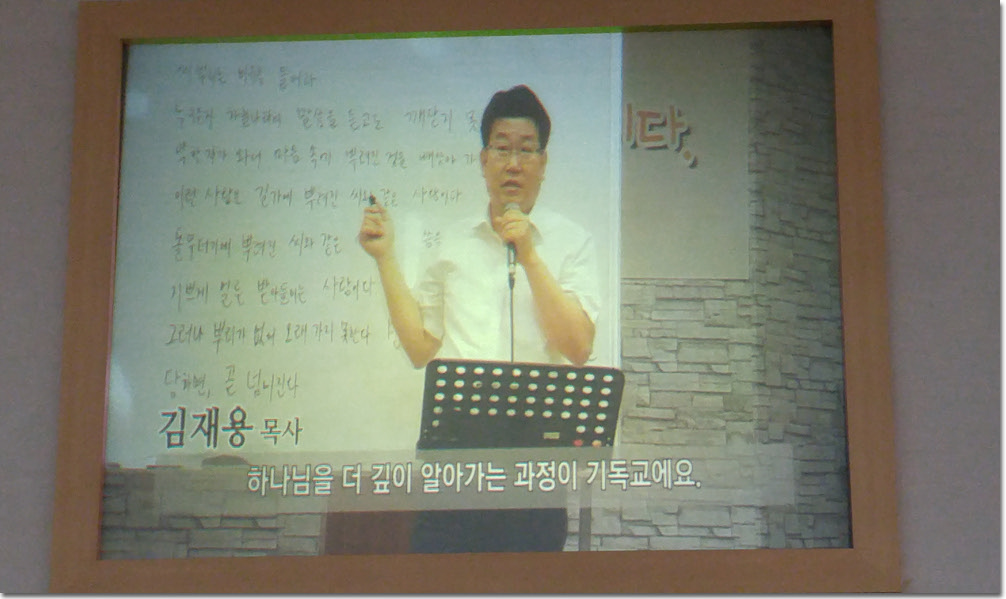 누구든지 하늘나라의 말씀을 듣고도 깨닫지 못
마음 속에 뿌려진 것을 빼앗아 가
이런 사람은 길가에 뿌려진 씨와 같은 사람이다
돌무더기에 뿌려진 씨와 같은 씀을
기쁘게 얼른 받아들이는 사람이다
그러나 뿌리가 없어 오래 가지 못한다
당하면, 곧 넘어진다
니다.
김재용 목사
하나님을 더 깊이 알아가는 과정이 기독교에요.